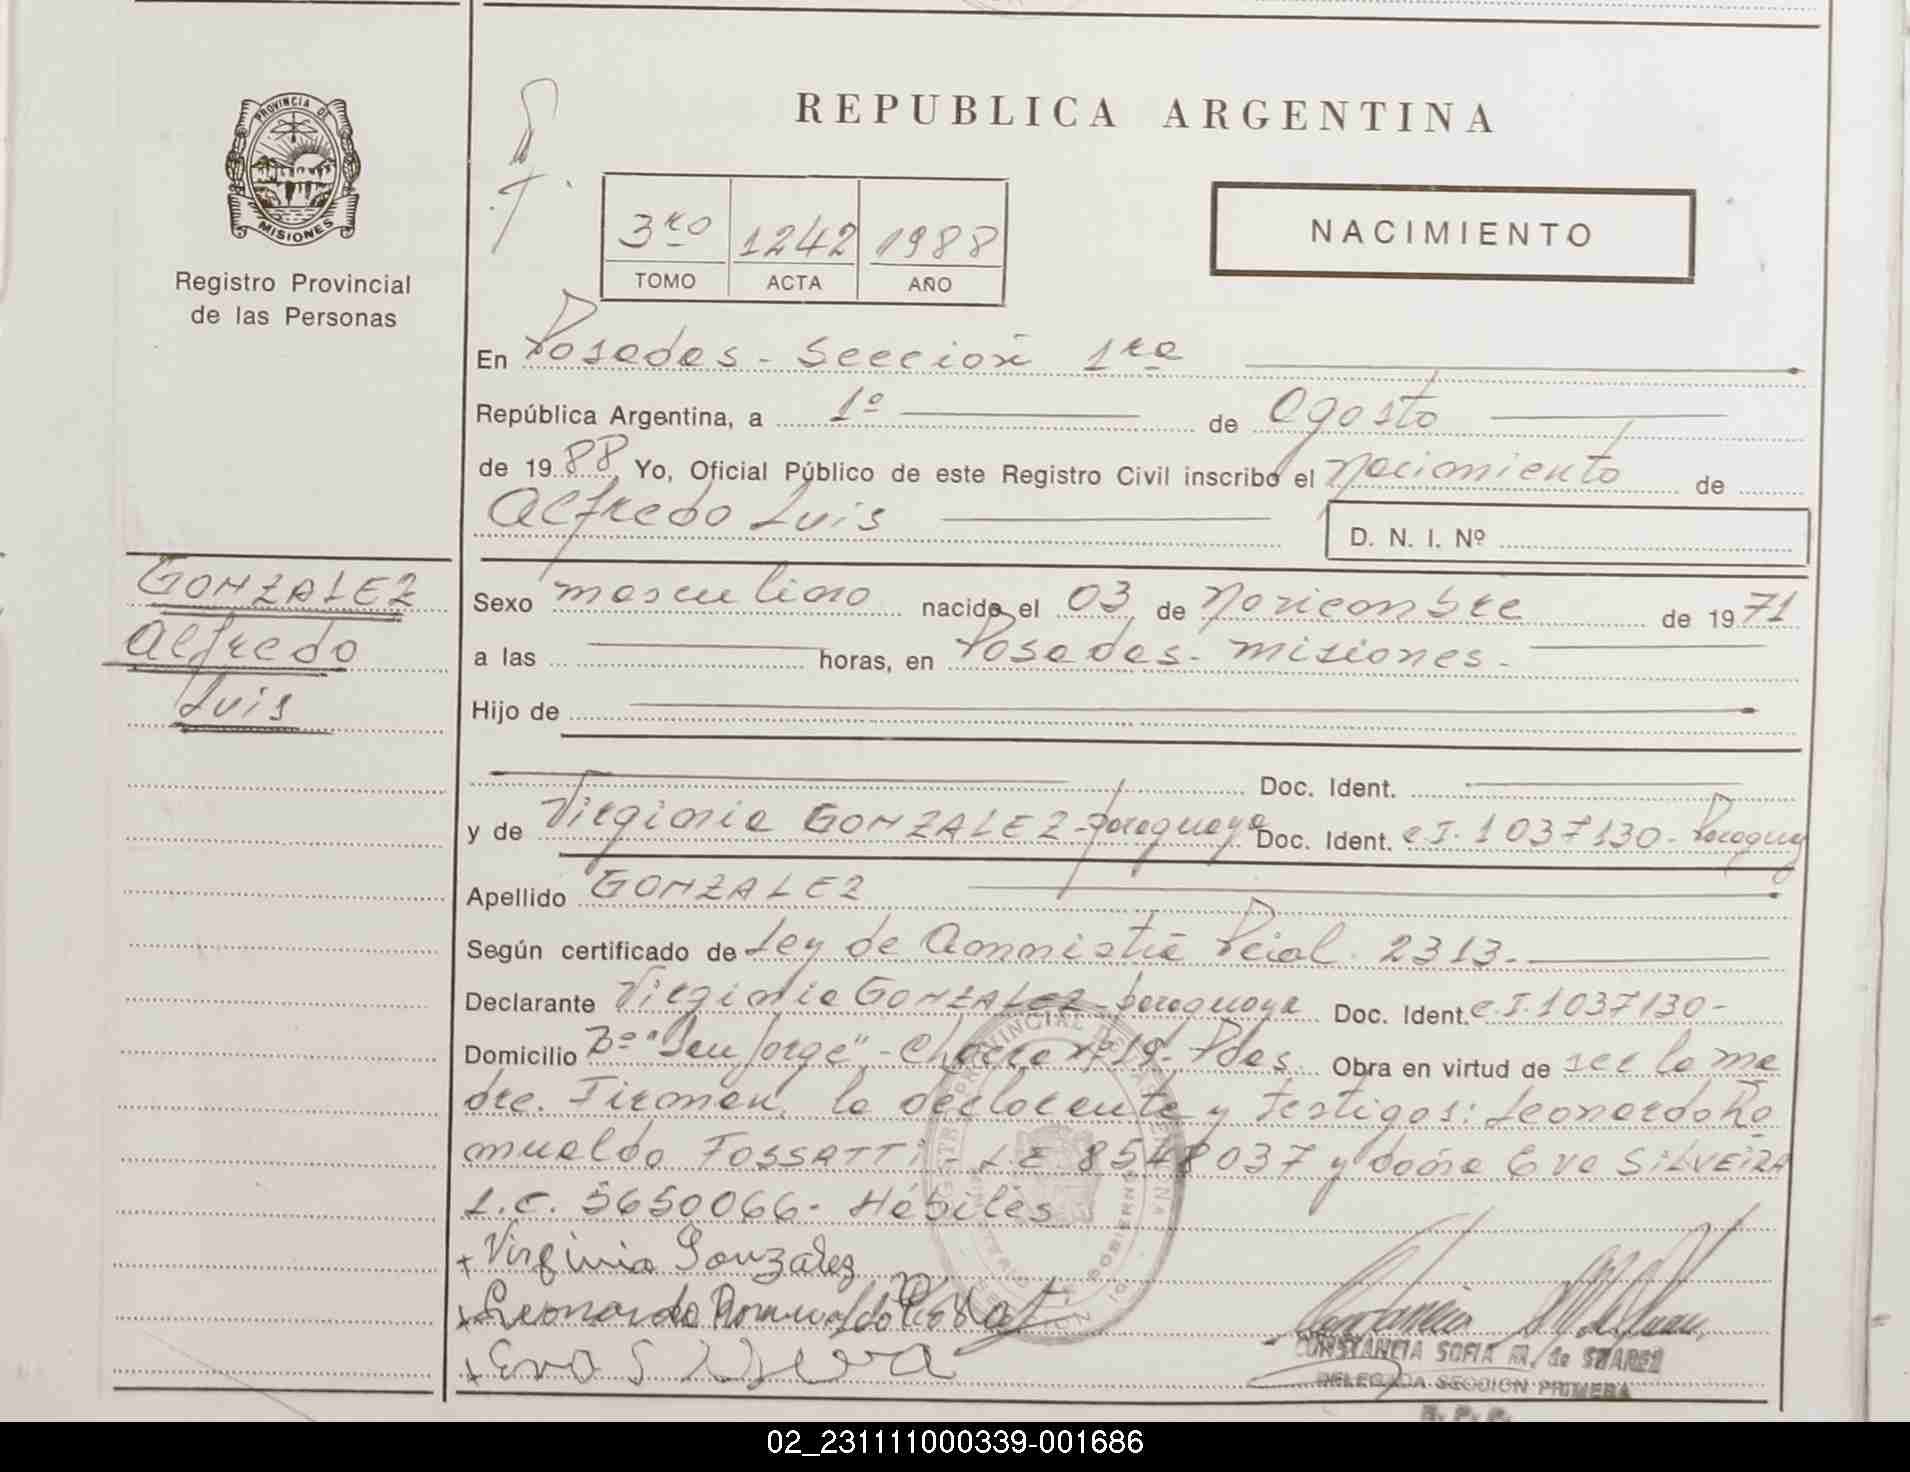 PROVINCIA DE
MISIONES
Registro Provincial
de las Personas
GONZALEZ
Alfredo
Luis
REPUBLICA ARGENTINA
3ro 1242 1988
TOMO ACTA AÑO
NACIMIENTO
En Posadas - Sección 1ra
República Argentina, a 1º de Agosto
de 1988 Yo, Oficial Público de este Registro Civil inscribo el nacimiento de
Alfredo Luis
D. N. I. Nº
Sexo masculino nacido el 03 de Noviembre de 1971
a las horas, en Posadas - misiones -
Hijo de
Doc. Ident.
y de Virginia GONZALEZ - paraguaya Doc. Ident. C.I. 1037130 - Paraguay
Apellido GONZALEZ
Según certificado de Ley de Amnistía Pcial. 2313.-
Declarante Virginia GONZALEZ - paraguaya Doc. Ident. C.I. 1037130 -
Domicilio Bº "San Jorge" - Chacra nº 19 - Pdas Obra en virtud de ser la ma
dre. Firman, la declarante y testigos: Leonardo Ro
mualdo FOSSATTI - LE 8548037 y doña Eva SILVEIRA
L.C. 5650066 - Hábiles
+ Virginia Gonzalez
+ Leonardo Romualdo
+ Eva Silvera
CONSTANCIA SOFIA M. de SUAREZ
DELEGADA SECCION PRIMERA
R. P. P.
02_231111000339-001686